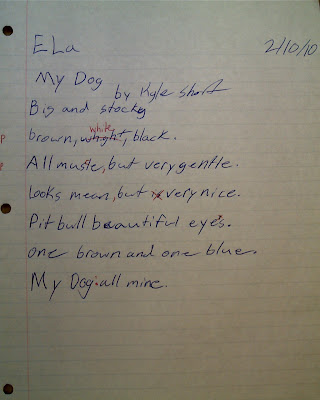 ELa 2/10/10
My Dog by Kyle Short
Big and stocky
p brown, whight white, black.
p All muscle, but very gentle.
Looks mean, but is very nice.
Pit bull beautiful eyes.
one brown and one blue.
My Dog. all mine.